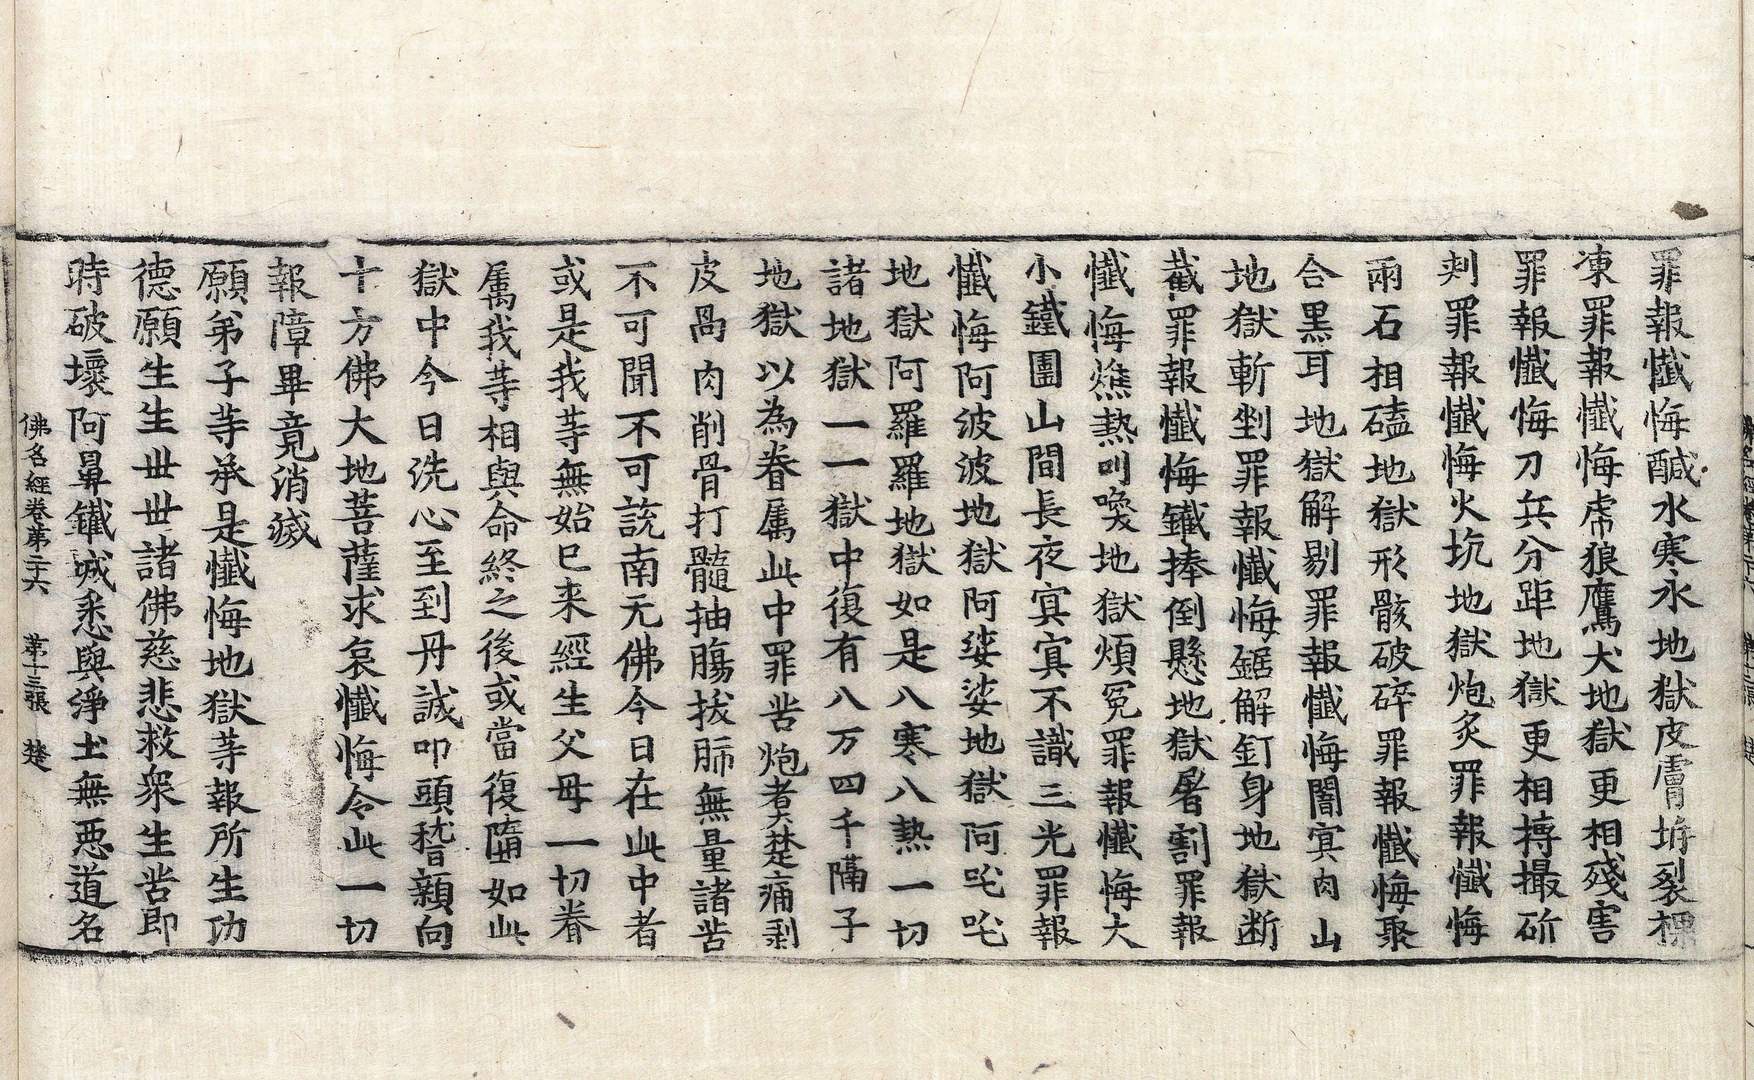 罪報懺悔醎水寒氷地獄皮膚坼裂裸
凍罪報懺悔虎狼鷹犬地獄更相殘害
罪報懺悔刀兵分距地獄更相搏撮斫
刾罪報懺悔火坑地獄炮炙罪報懺悔
兩石相磕地獄形骸破碎罪報懺悔聚
合黑耳地獄解剔罪報懺悔闇冥肉山
地獄斬剉罪報懺悔鋸解釘身地獄断
截罪報懺悔鐵捧倒懸地獄屠割罪報
懺悔燋熱叫喚地獄煩冤罪報懺悔大
小鐵圍山間長夜冥冥不識三光罪報
懺悔阿波波地獄阿婆婆地獄阿吒吒
地獄阿羅羅地獄如是八寒八熱一切
諸地獄一一獄中復有八万四千隔子
地獄以為眷属此中罪苦炮煮楚痛剥
皮剮肉削骨打髓抽腸拔肺無量諸苦
不可聞不可說南无佛今日在此中者
或是我等無始已来經生父母一切眷
属我等相與命終之後或當復墮如此
獄中今日洗心至到丹誠叩頭稽顙向
十方佛大地菩薩求哀懺悔令此一切
報障畢竟消滅
願弟子等承是懺悔地獄等報所生功
德願生生丗丗諸佛慈悲救衆生苦即
時破壞阿鼻鐵城悉與淨土無惡道名
佛名經卷第二十六　第十三張　楚